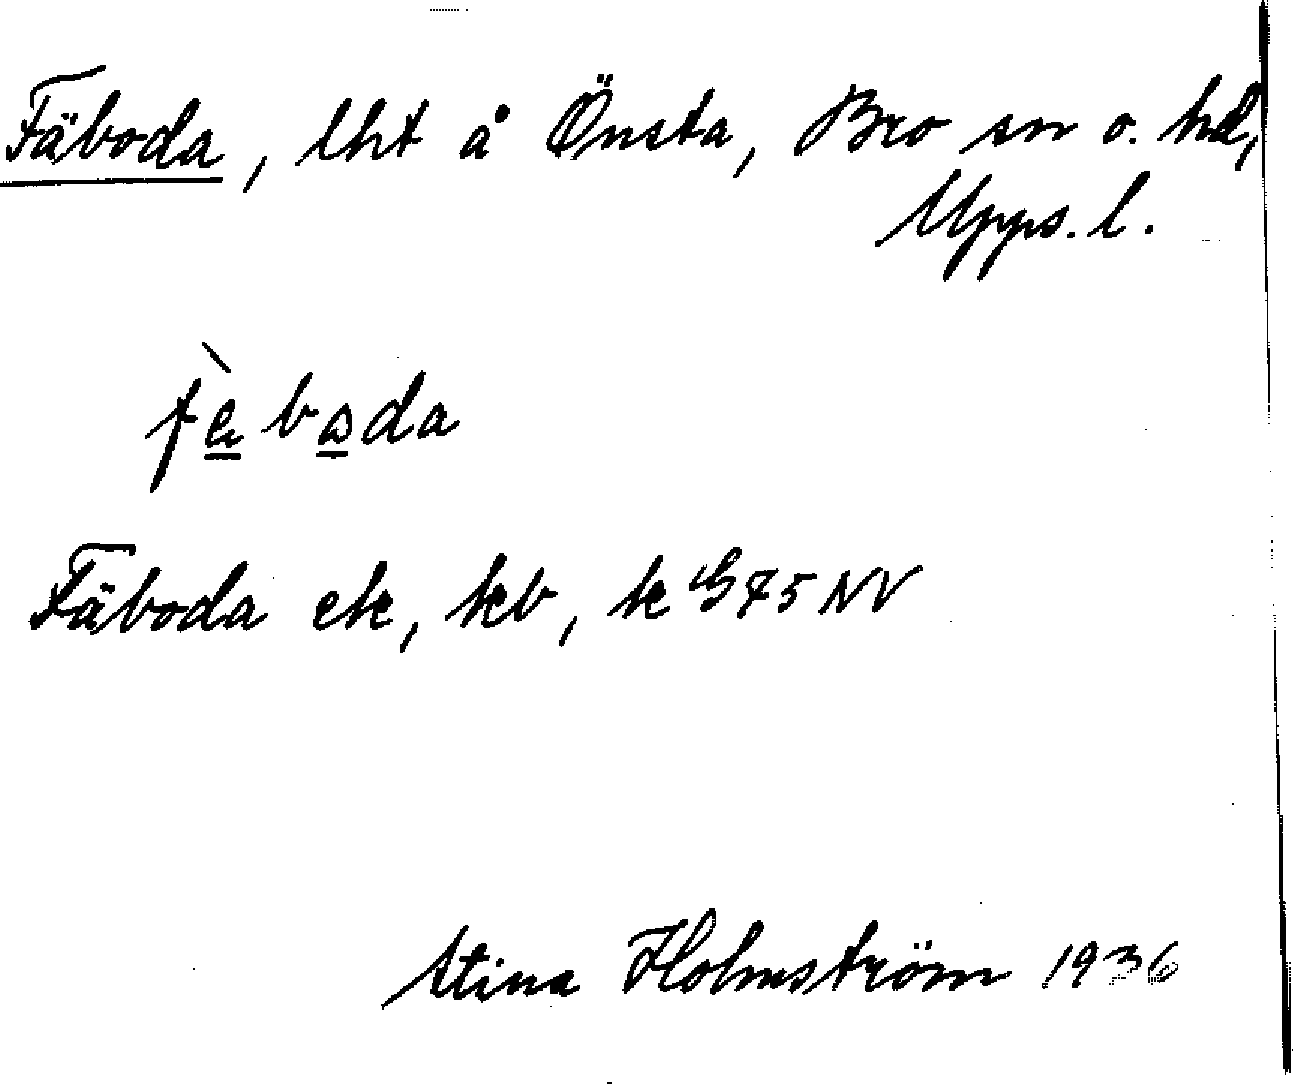 Fäboda, lht å Önsta, Bro sn o. hd,
Upps. l.
fὲbωda
Fäboda ek, kb, k G 75 NV
Stina Holmström 1936